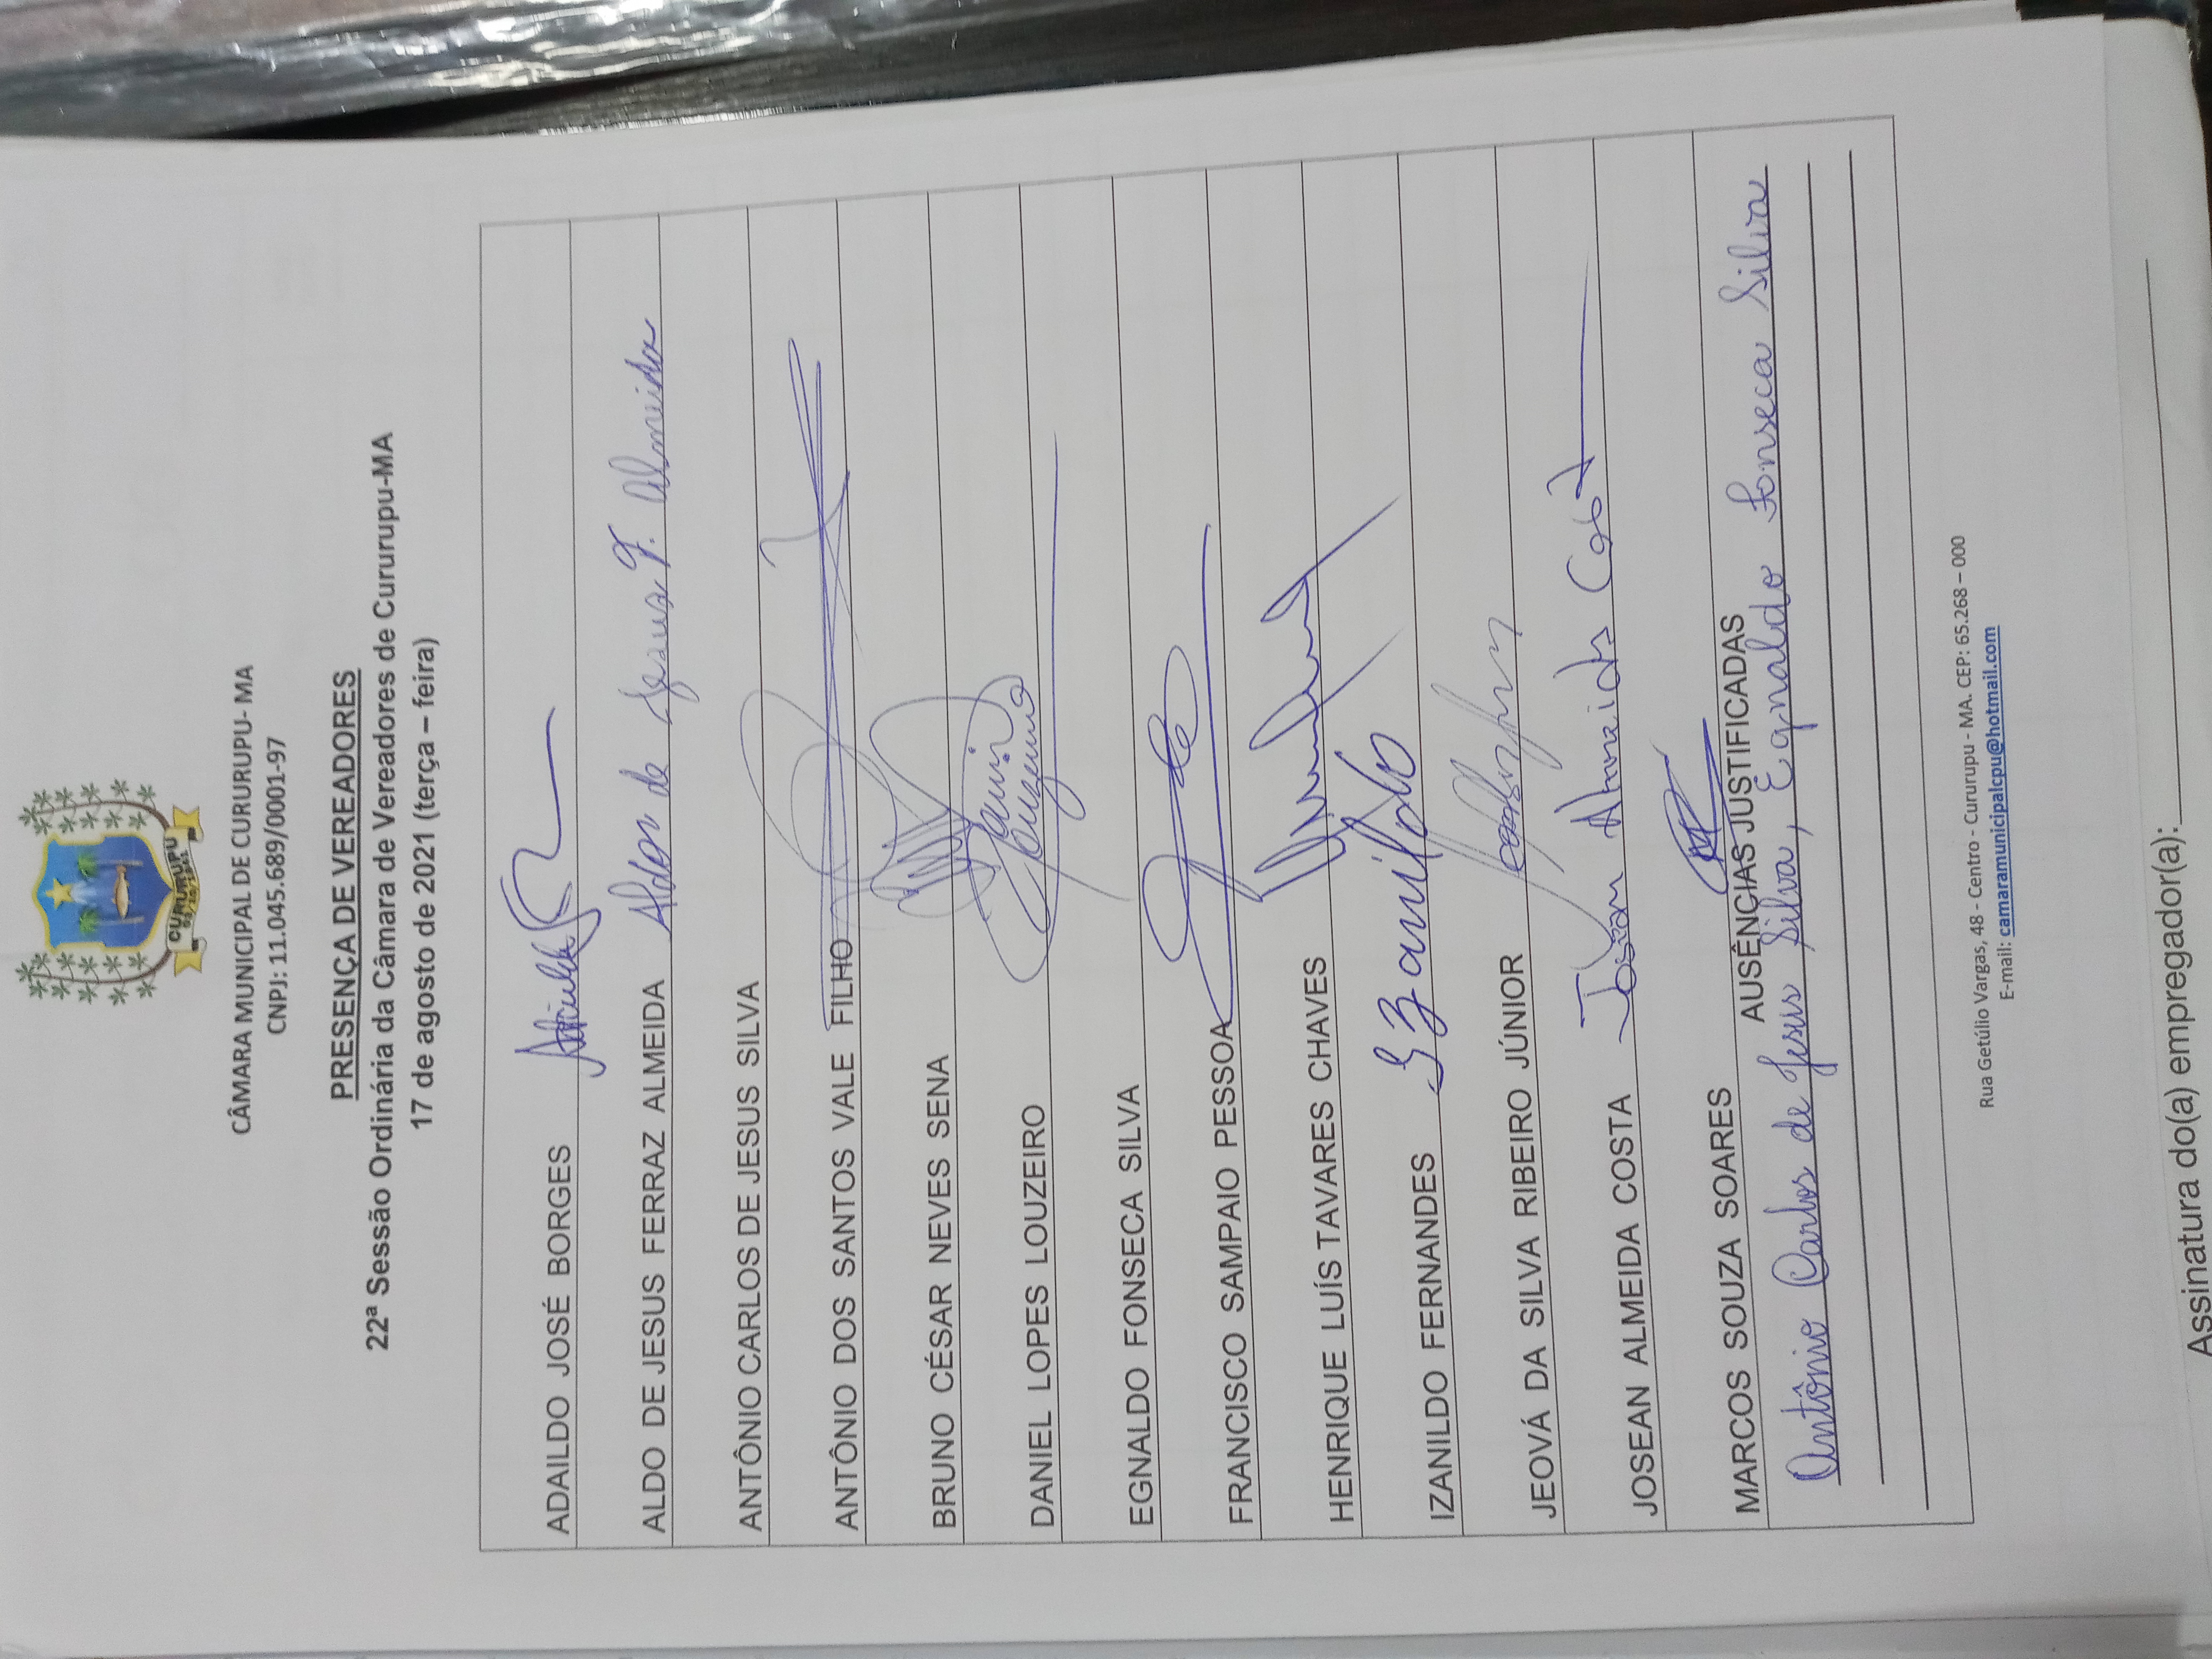 CURURUPU
CÂMARA MUNICIPAL DE CURURUPU- MA
CNPJ: 11.045.689/0001-97
PRESENÇA DE VEREADORES
22ª Sessão Ordinária da Câmara de Vereadores de Cururupu-MA
17 de agosto de 2021 (terça – feira)
ADAILDO JOSÉ BORGES
ALDO DE JESUS FERRAZ ALMEIDA Aldo de Jesus F. Almeida
ANTÔNIO CARLOS DE JESUS SILVA
ANTÔNIO DOS SANTOS VALE FILHO
BRUNO CÉSAR NEVES SENA
DANIEL LOPES LOUZEIRO
EGNALDO FONSECA SILVA
FRANCISCO SAMPAIO PESSOA
HENRIQUE LUÍS TAVARES CHAVES
IZANILDO FERNANDES Izanildo
JEOVÁ DA SILVA RIBEIRO JÚNIOR
JOSEAN ALMEIDA COSTA Josean Almeida Costa
MARCOS SOUZA SOARES
AUSÊNCIAS JUSTIFICADAS
Antônio Carlos de Jesus Silva, Egnaldo Fonseca Silva
Rua Getúlio Vargas, 48 - Centro - Cururupu - MA. CEP: 65.268 – 000
E-mail: camaramunicipalcpu@hotmail.com
Assinatura do(a) empregador(a):